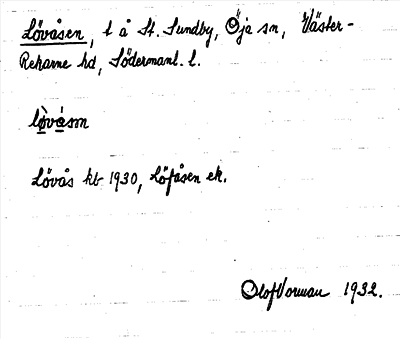 Lövåsen, t å St. Sundby, Öja sn, Väster-
Rekarne hd, Södermanl. l.
lö̀våsm
Lövås kb 1930, Löfåsen ek.
Olof Vorman 1932.